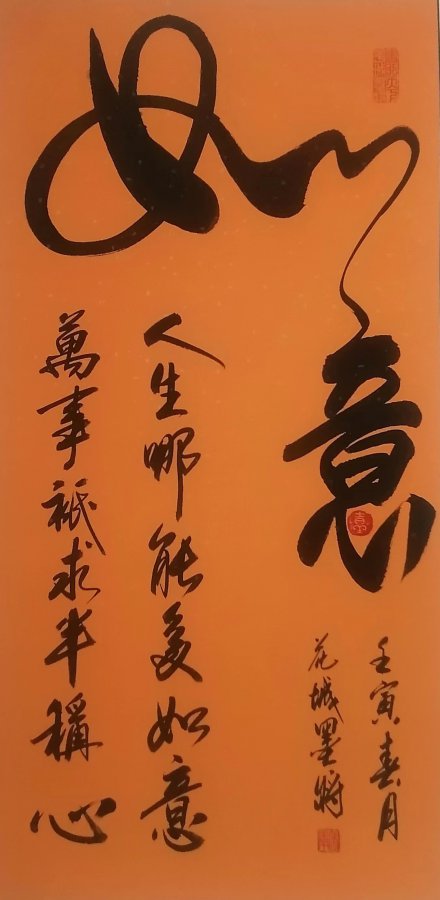 如意
人生哪能多如意
萬事祗求半稱心
壬寅春月
花城墨將